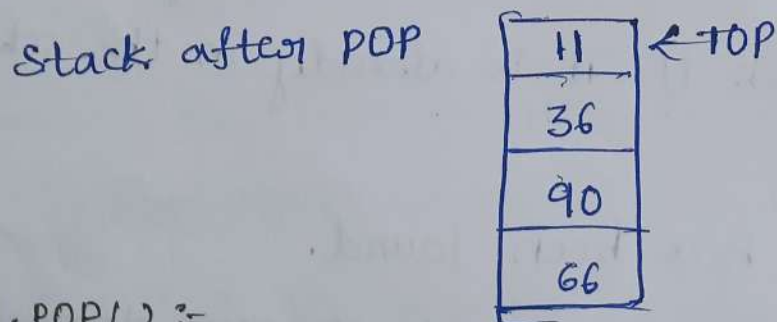 Stack after POP
11 ← TOP
36
90
66
.POP( ) :-